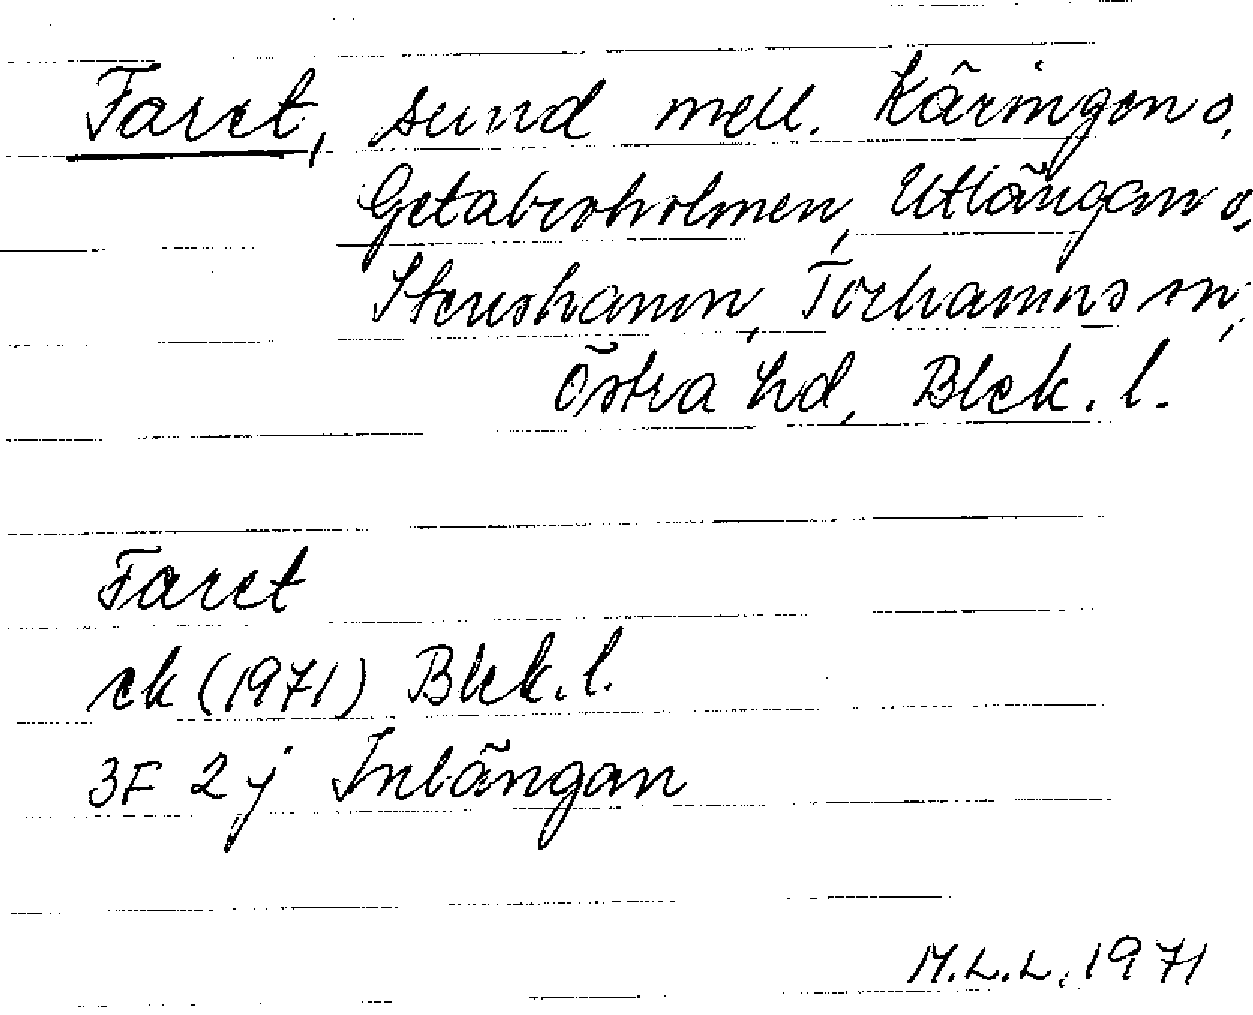 Faret, sund mell. Käringen o.
Getabroholmen, Utlängan o.
Stenshamn, Torhamns sn,
Östra hd, Blek. l.
Faret
ek (1971) Blek. l.
3F 2j Inlängan
M.L.L. 1971